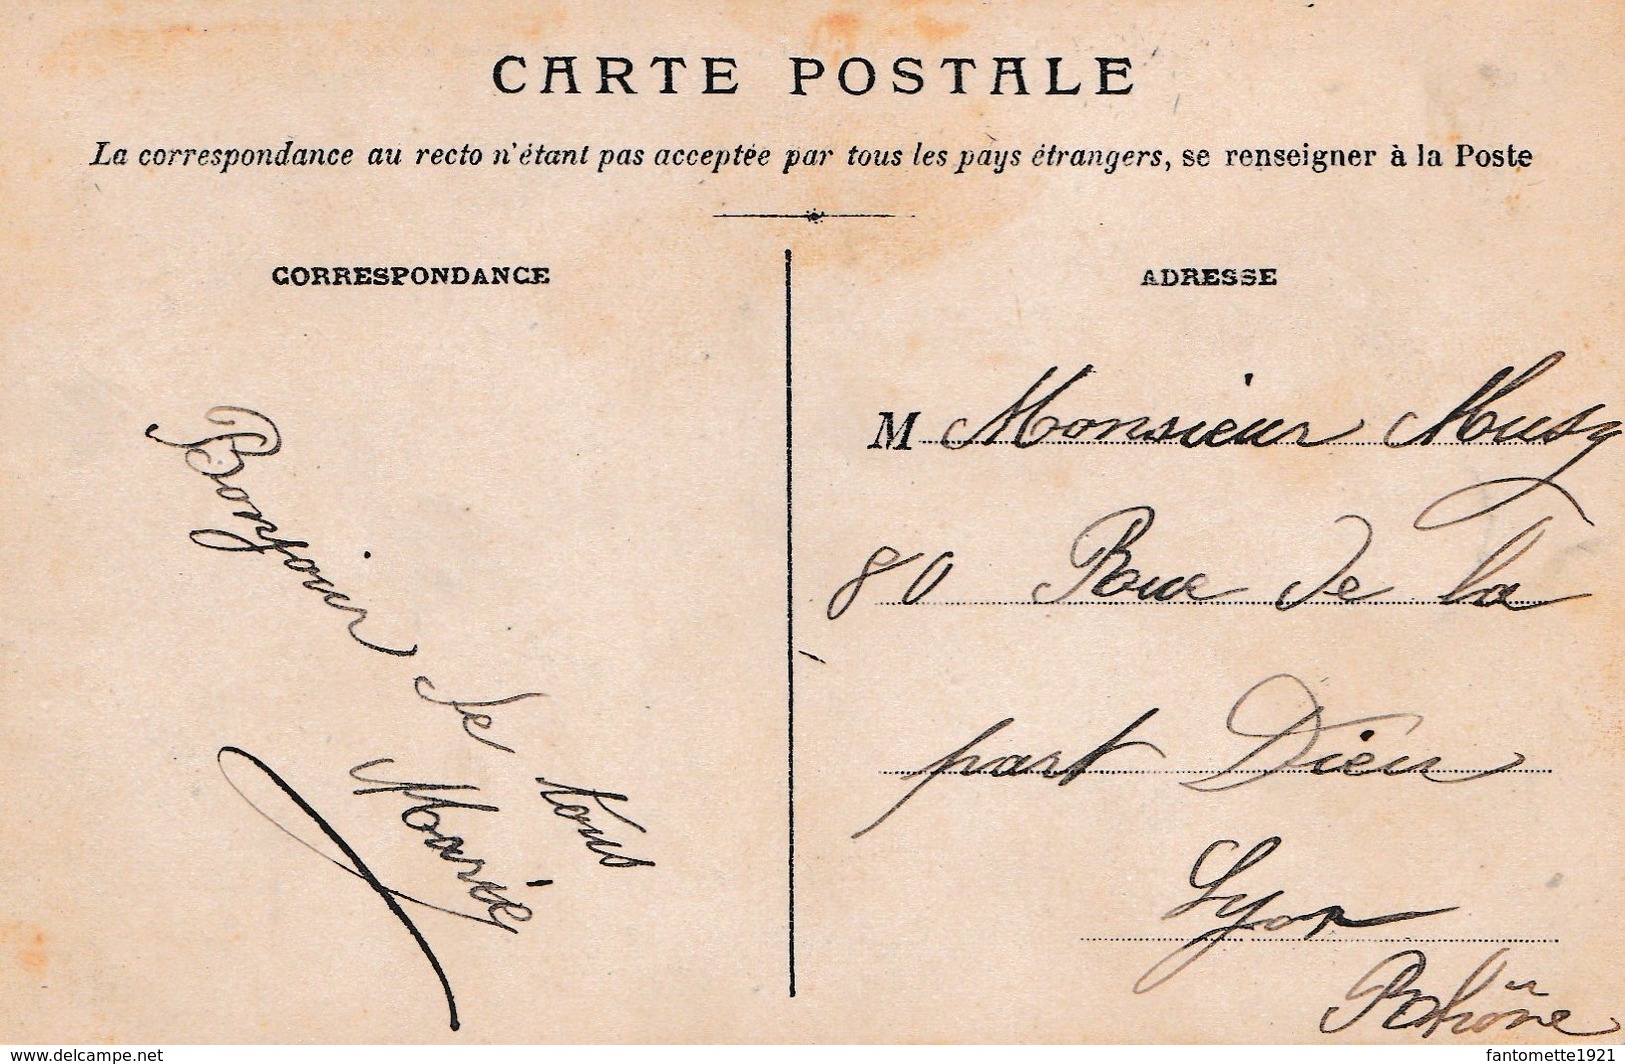 CARTE POSTALE
La correspondance au recto n'étant pas acceptée par tous les pays étrangers, se renseigner à la Poste
CORRESPONDANCE
Bonjour de
tous
Marie
ADRESSE
M Monsieur Musy
80 Rue de la
part Dieu
Lyon
Rhône
www.delcampe.net
fantomette1921